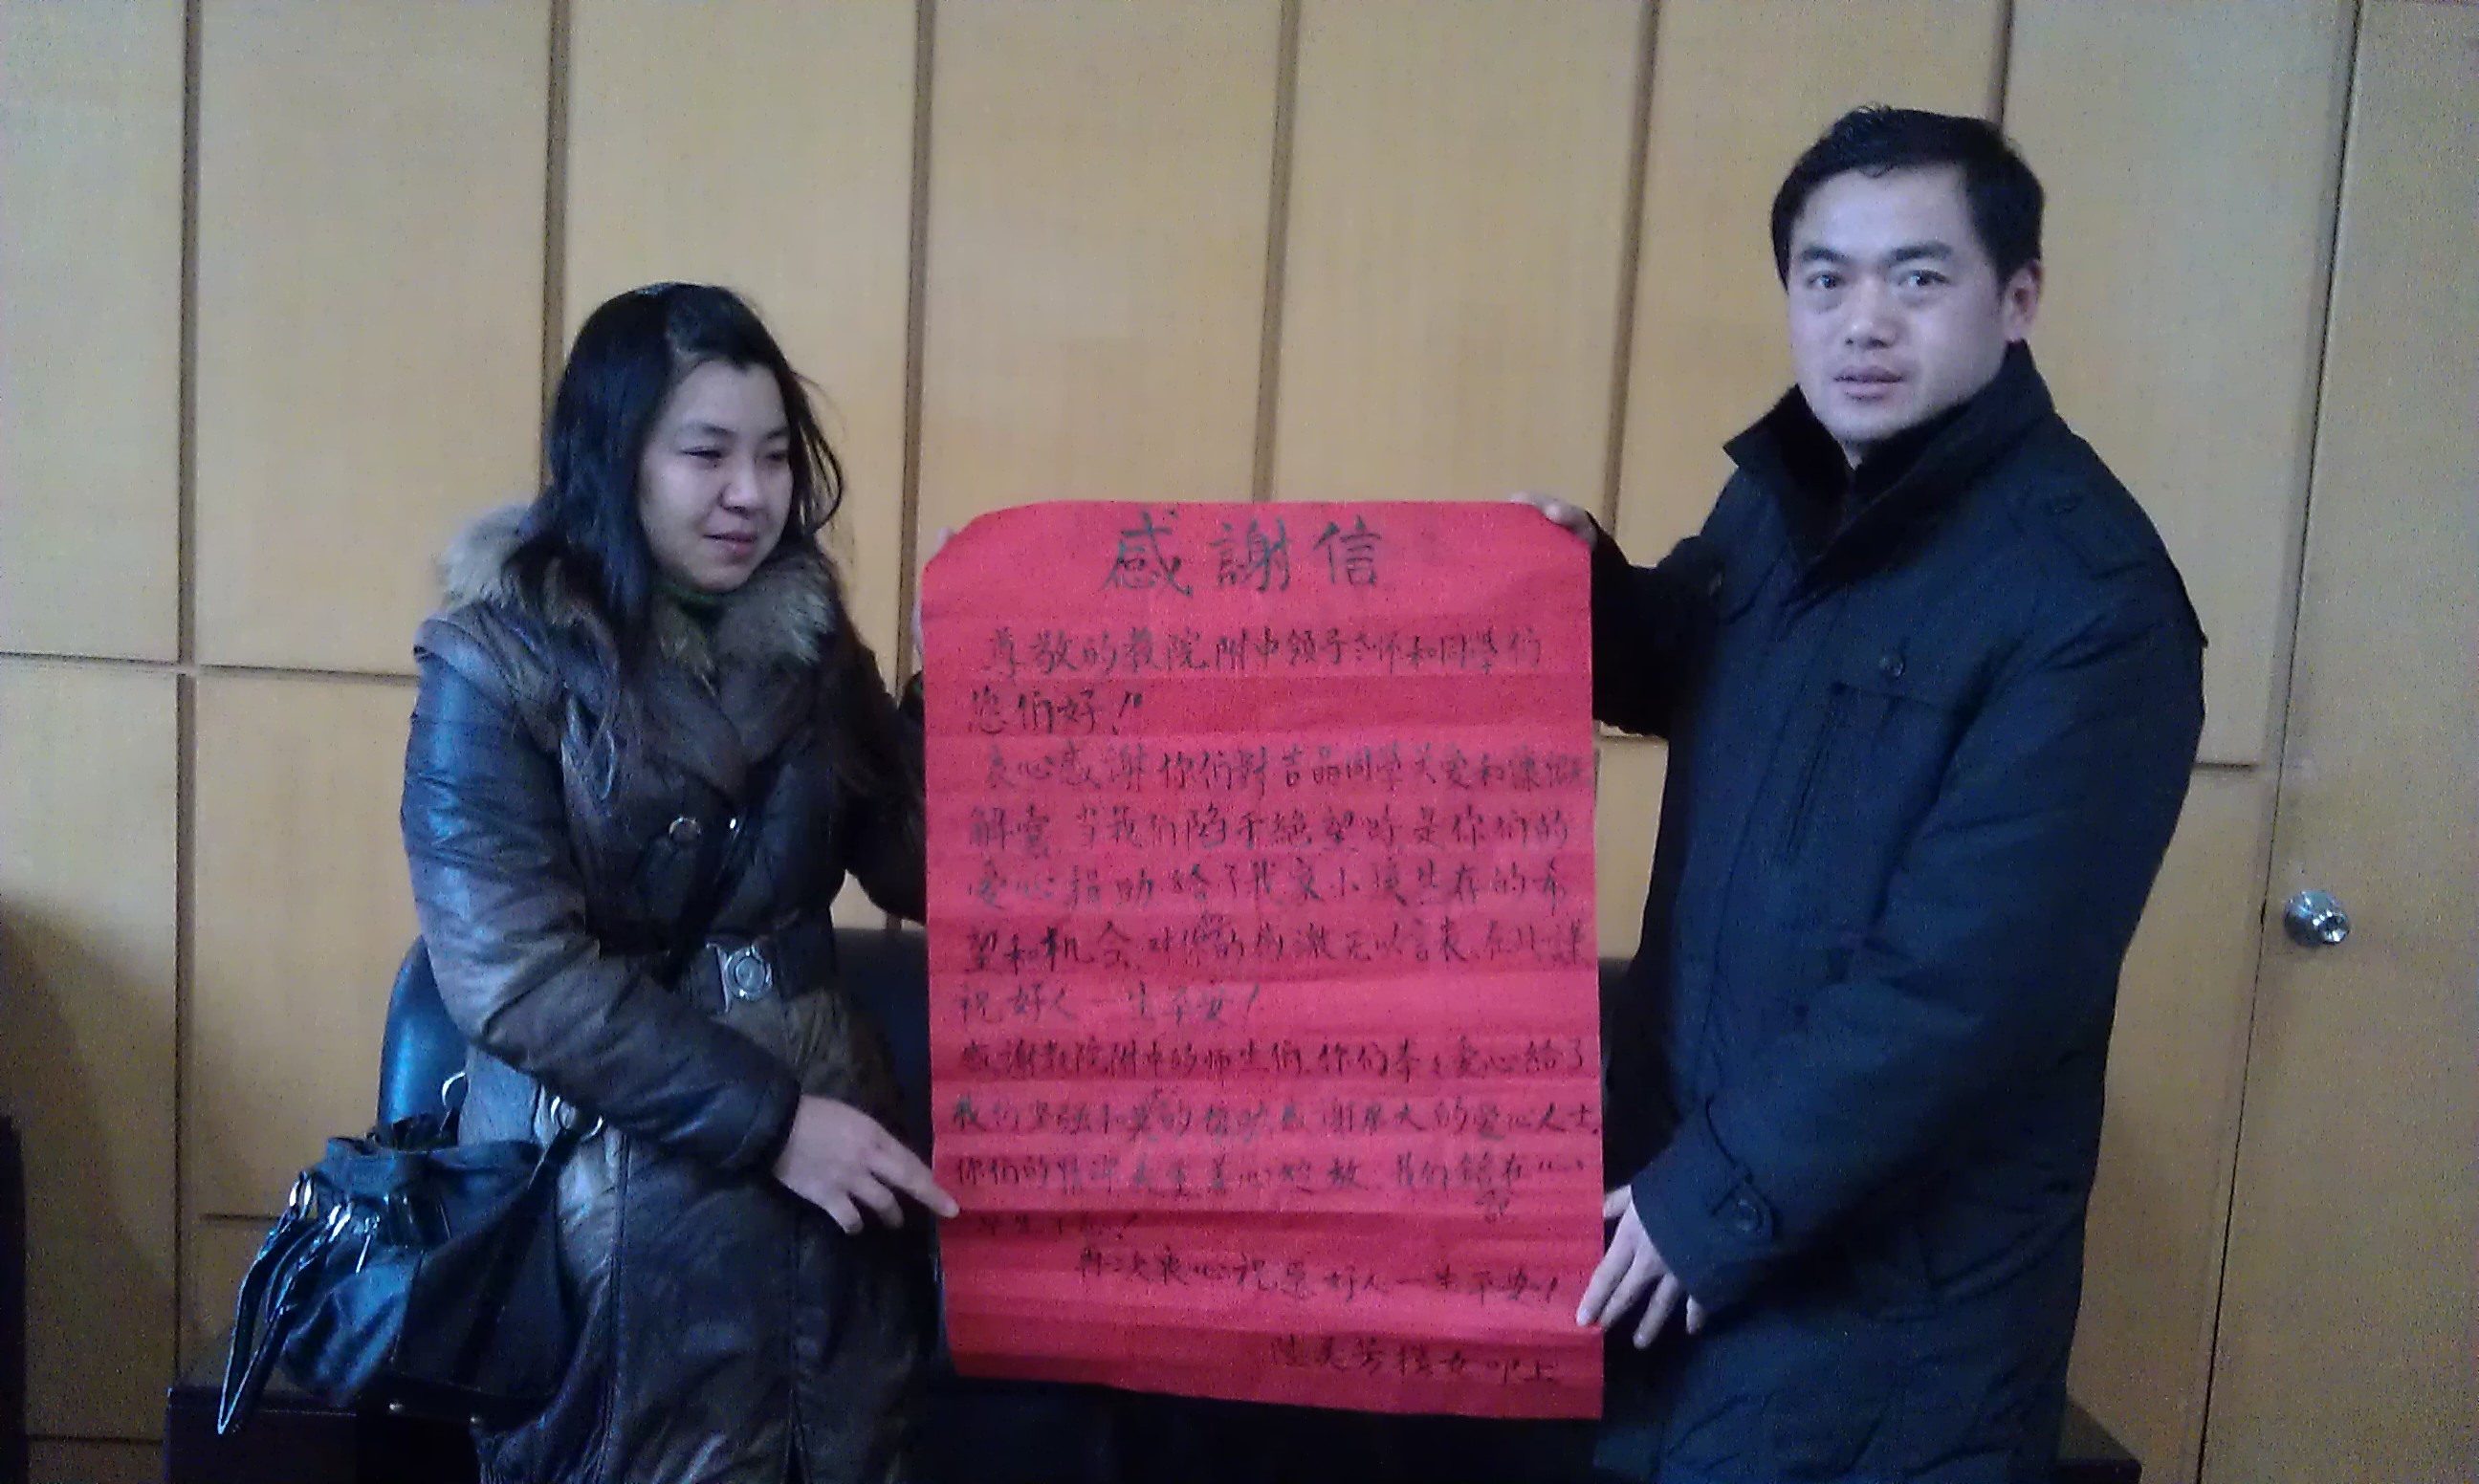 感謝信
尊敬的教院附中领导老师和同学们
您们好!!
衷心感謝你们對吉品同学关爱和慷慨
解囊,当我们陷于絶望時是你们的
爱心捐助给了我家小孩生存的希
望和机会,对你们的感激无以言表,在此谨
祝好人一生平安!
感謝教院附中的师生们,你们奉爱心给了
我们坚强和的帮助感謝广大的爱心人士,
你们的善心我们銘記在心
毕生不忘!
再次衷心祝愿好人一生平安!
芳携女叩上